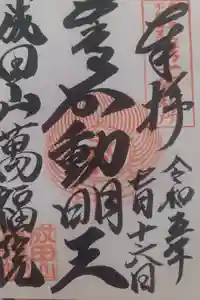 奉拝
令和五年
月十六日
不動明王
成田山萬福院